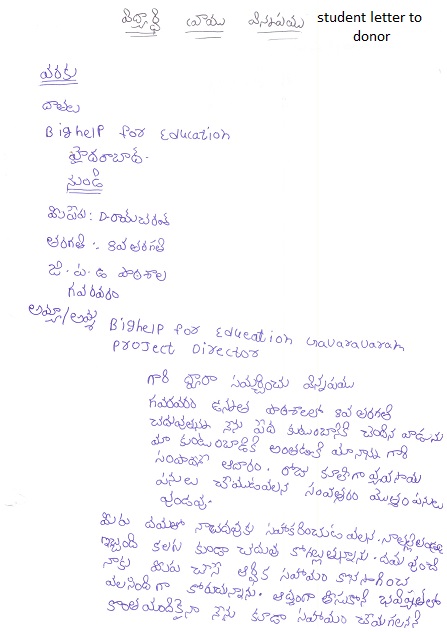 విద్యార్థి వ్రాయు విన్నపము student letter to
donor
వరకు
దాతలు
BigHelp for Education
హైదరాబాద్.
నుండి
పేరు: D. రామచరణ్
తరగతి :- 8వ తరగతి
జి. ప. ఉ పాఠశాల
గవరవరం
అమ్మా/అయ్యా BigHelp for Education Gavaravaram
Project Director
గారి ద్వారా సమర్పించు విన్నపము
గవరవరం ఉన్నత పాఠశాలలో 8వ తరగతి
చదువుతున్న నేను పేద కుటుంబానికి చెందిన వాడును
మా కుటుంబానికి అంతటికి మా నాన్న గారి
సంపాదనే ఆధారం. రోజు కూలిగా వ్యవసాయ
పనులు చేయుటవలన సంవత్సరం మొత్తం పనులు
వుండవు.
మీరు దయతో నా చదువుకు సహకరించుట వలన. నా తల్లిదండ్రులకు
ఇబ్బంది కలగ కుండా చదువు కోగల్గుతున్నాను. దయ వుంచి
నాకు మీరు చేసే ఆర్థిక సహాయం కొనసాగించ
వలసిందిగా కోరుచున్నాను. ఆదర్శంగా తీసుకొని భవిష్యత్తులో
కొంతమందికైనా నేను కూడా సహాయం చేయగలనని